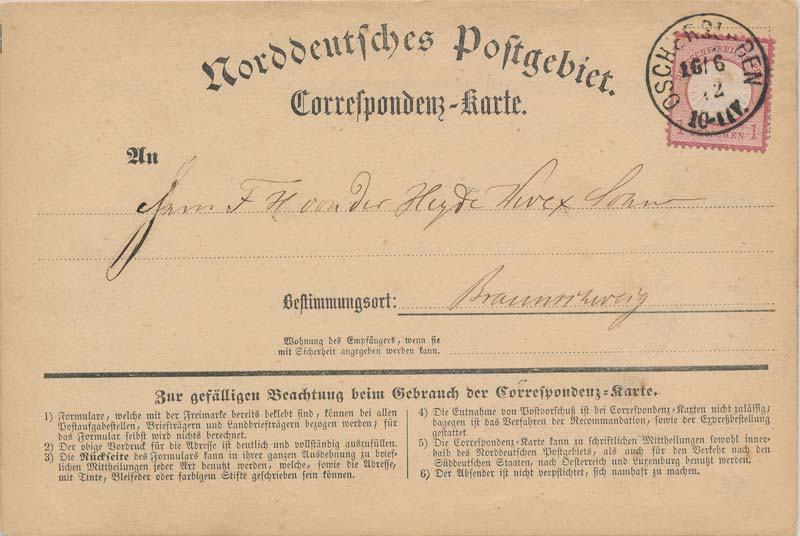 Norddeutsches Postgebiet.
Correspondenz-Karte.
OSCHERSLEBEN
16/6
72
10-11V.
1 GROSCHEN 1
An
Herrn F H von der Heyde Sohn
Bestimmungsort: Braunschweig
Wohnung des Empfängers, wenn sie
mit Sicherheit angegeben werden kann.
Zur gefälligen Beachtung beim Gebrauch der Correspondenz-Karte.
1) Formulare, welche mit der Freimarke bereits beklebt sind, können bei allen
Postaufgabestellen, Briefträgern und Landbriefträgern bezogen werden; für
das Formular selbst wird nichts berechnet.
2) Der obige Vordruck für die Adresse ist deutlich und vollständig auszufüllen.
3) Die Rückseite des Formulars kann in ihrer ganzen Ausdehnung zu brief-
lichen Mittheilungen jeder Art benutzt werden, welche, sowie die Adresse,
mit Tinte, Bleifeder oder farbigem Stifte geschrieben sein können.
4) Die Entnahme von Postvorschuß ist bei Correspondenz-Karten nicht zulässig;
dagegen ist das Verfahren der Recommandation, sowie der Expreßbestellung
gestattet.
5) Die Correspondenz-Karte kann zu schriftlichen Mittheilungen sowohl inner-
halb des Norddeutschen Postgebiets, als auch für den Verkehr nach den
Süddeutschen Staaten, nach Oesterreich und Luxemburg benutzt werden.
6) Der Absender ist nicht verpflichtet, sich namhaft zu machen.